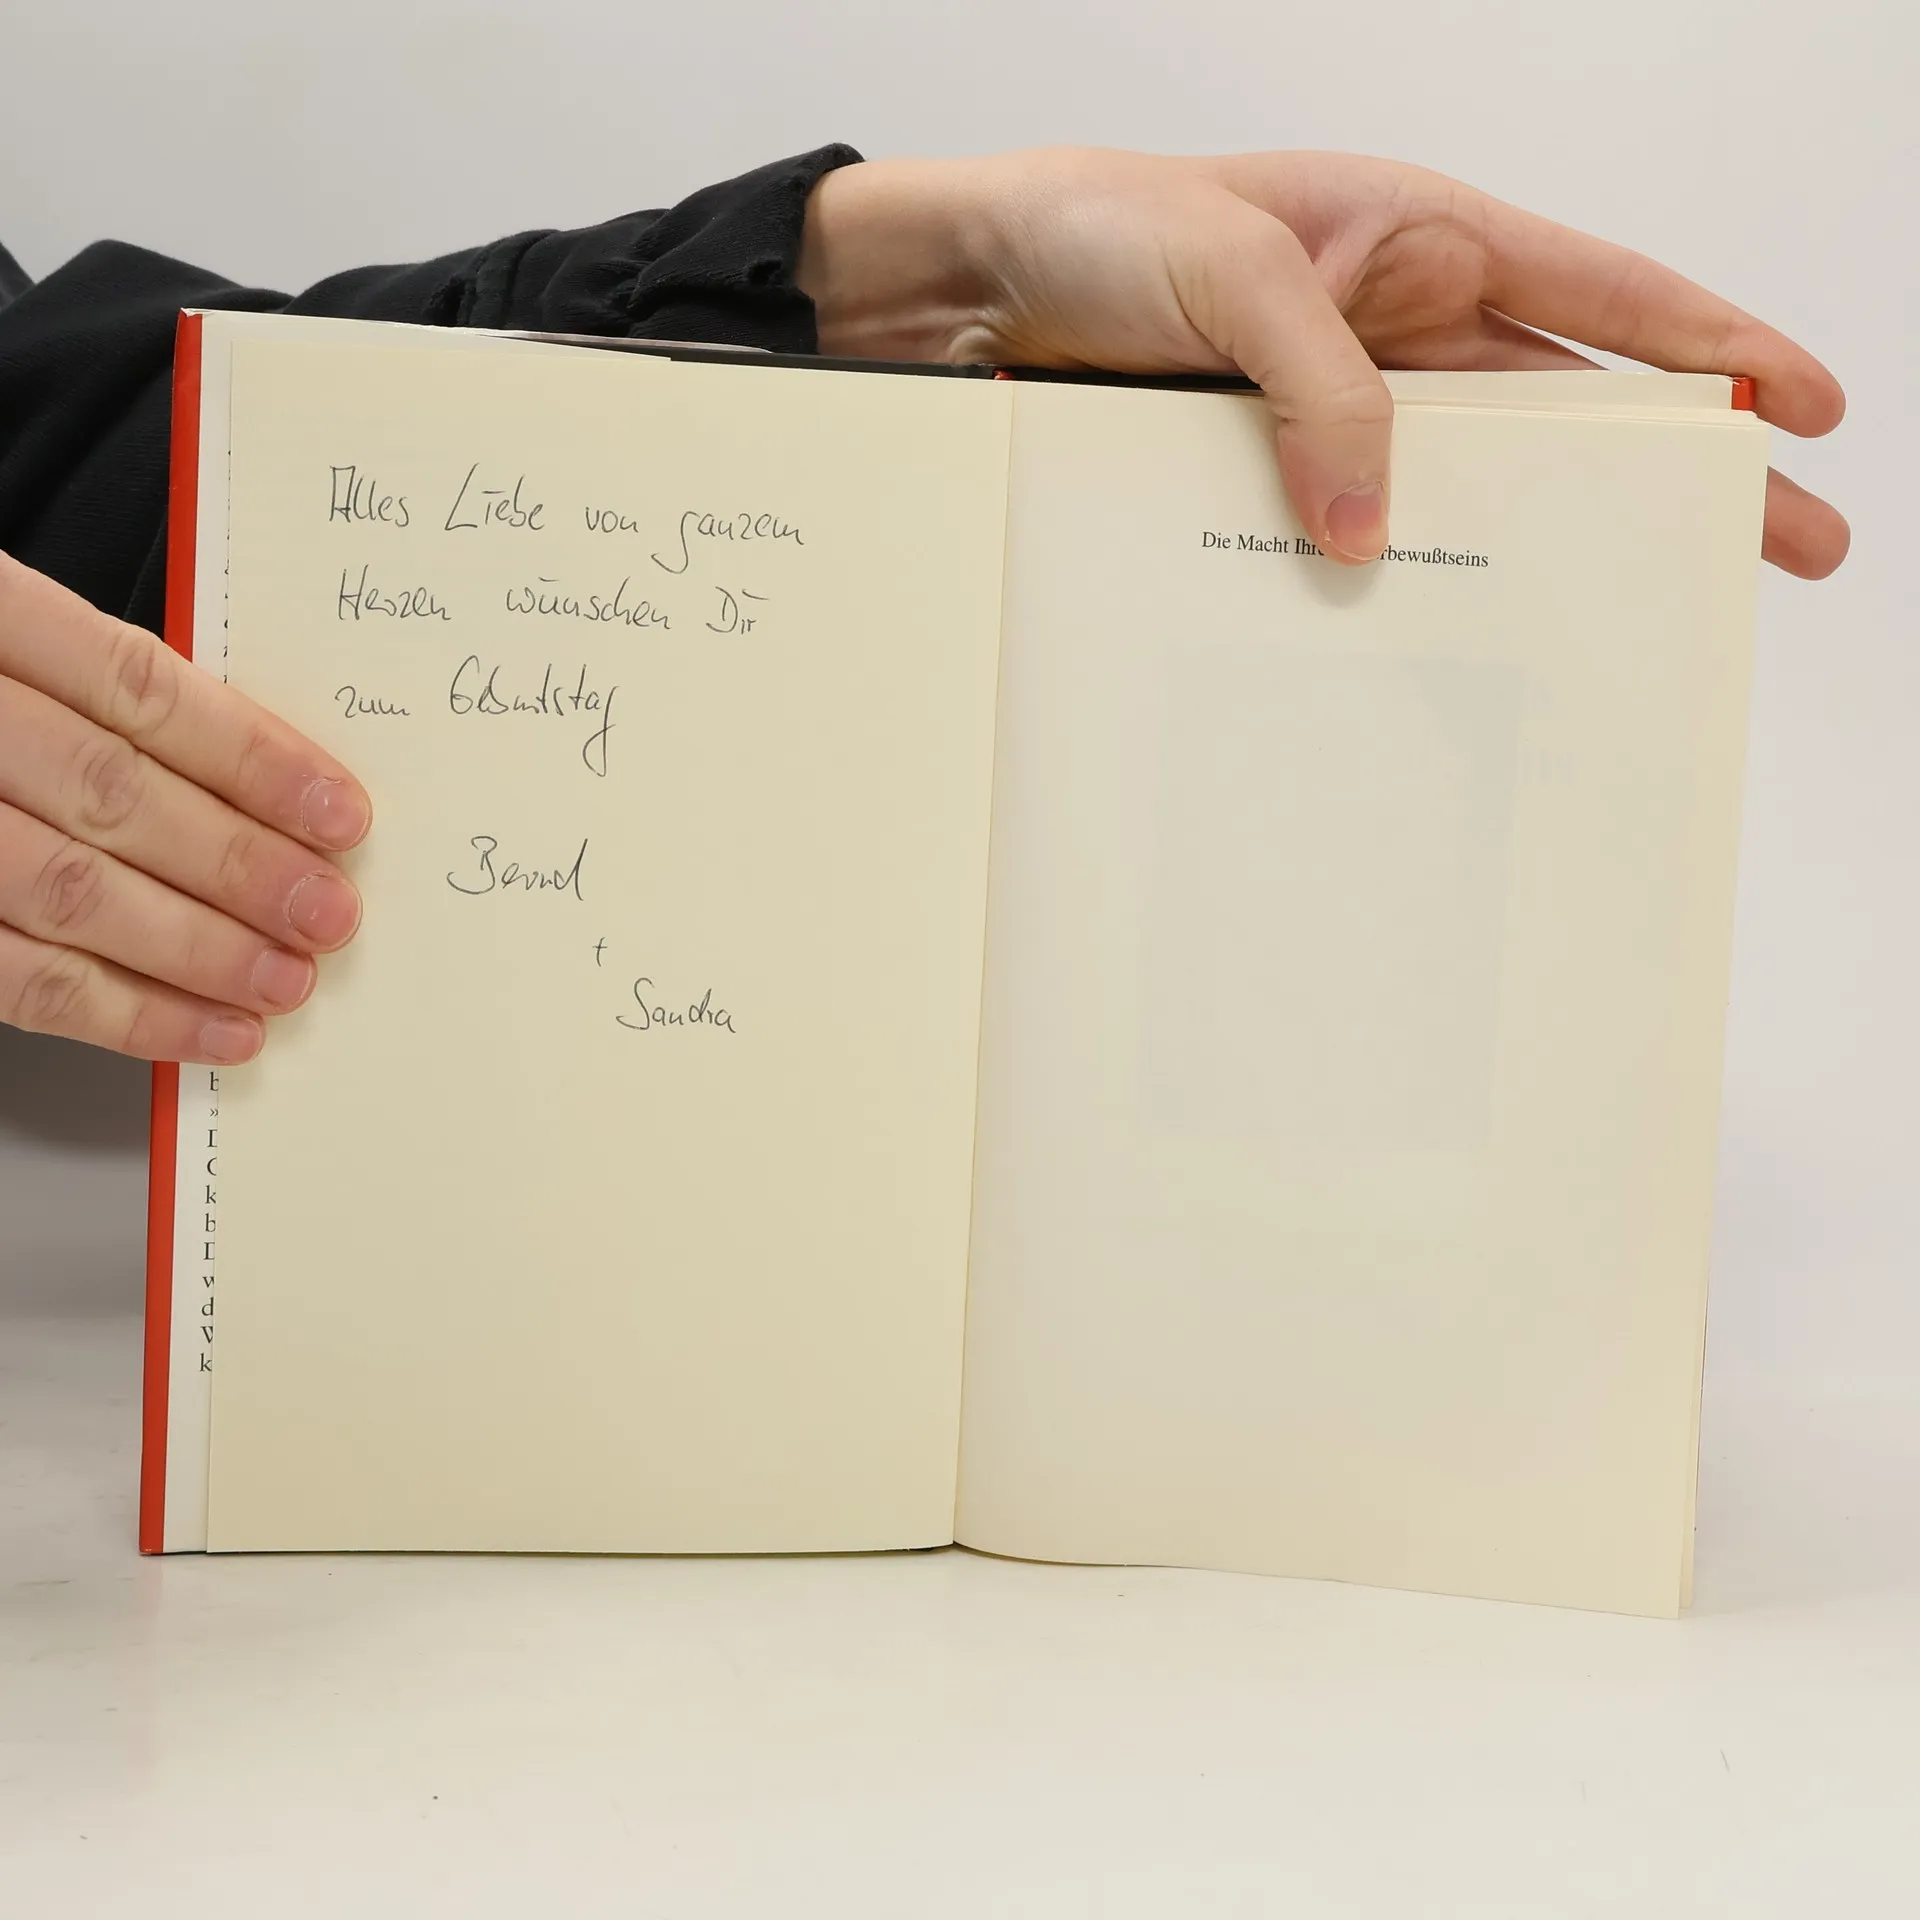 Alles Liebe von ganzem
Herzen wünschen Dir
zum Geburtstag
Bernd
+
Sandra
Die Macht rbewußtseins
b
»
D
k
b
D
w
d
W
k